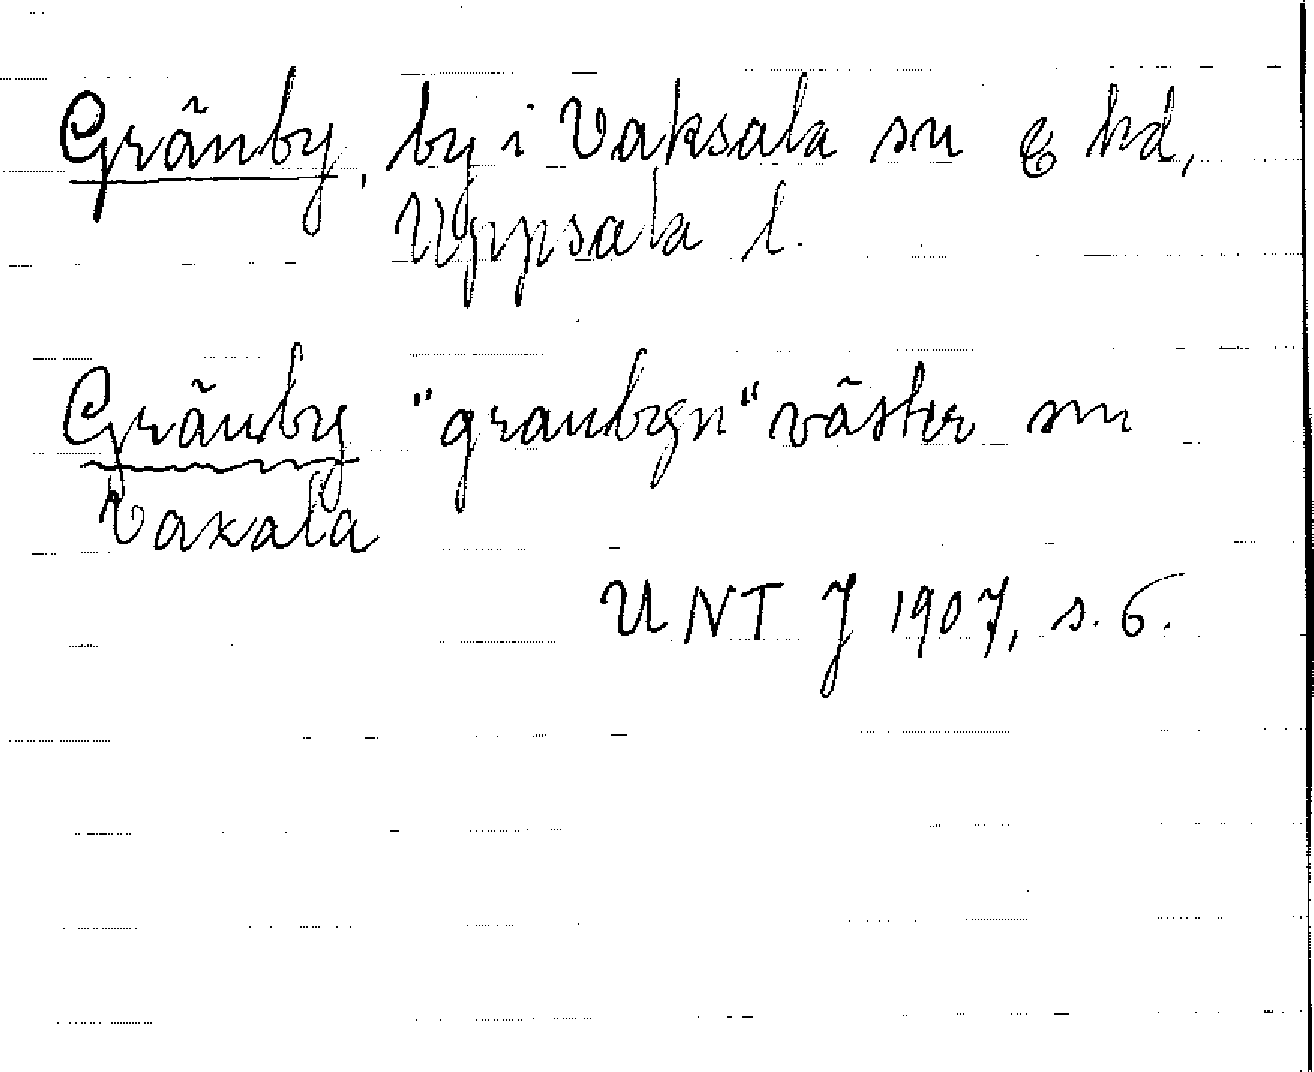 Gränby, by i Vaksala sn & hd,
Uppsala l.
Gränby "granbyn" väster om
Vaxala
UNT J 1907, s. 6.